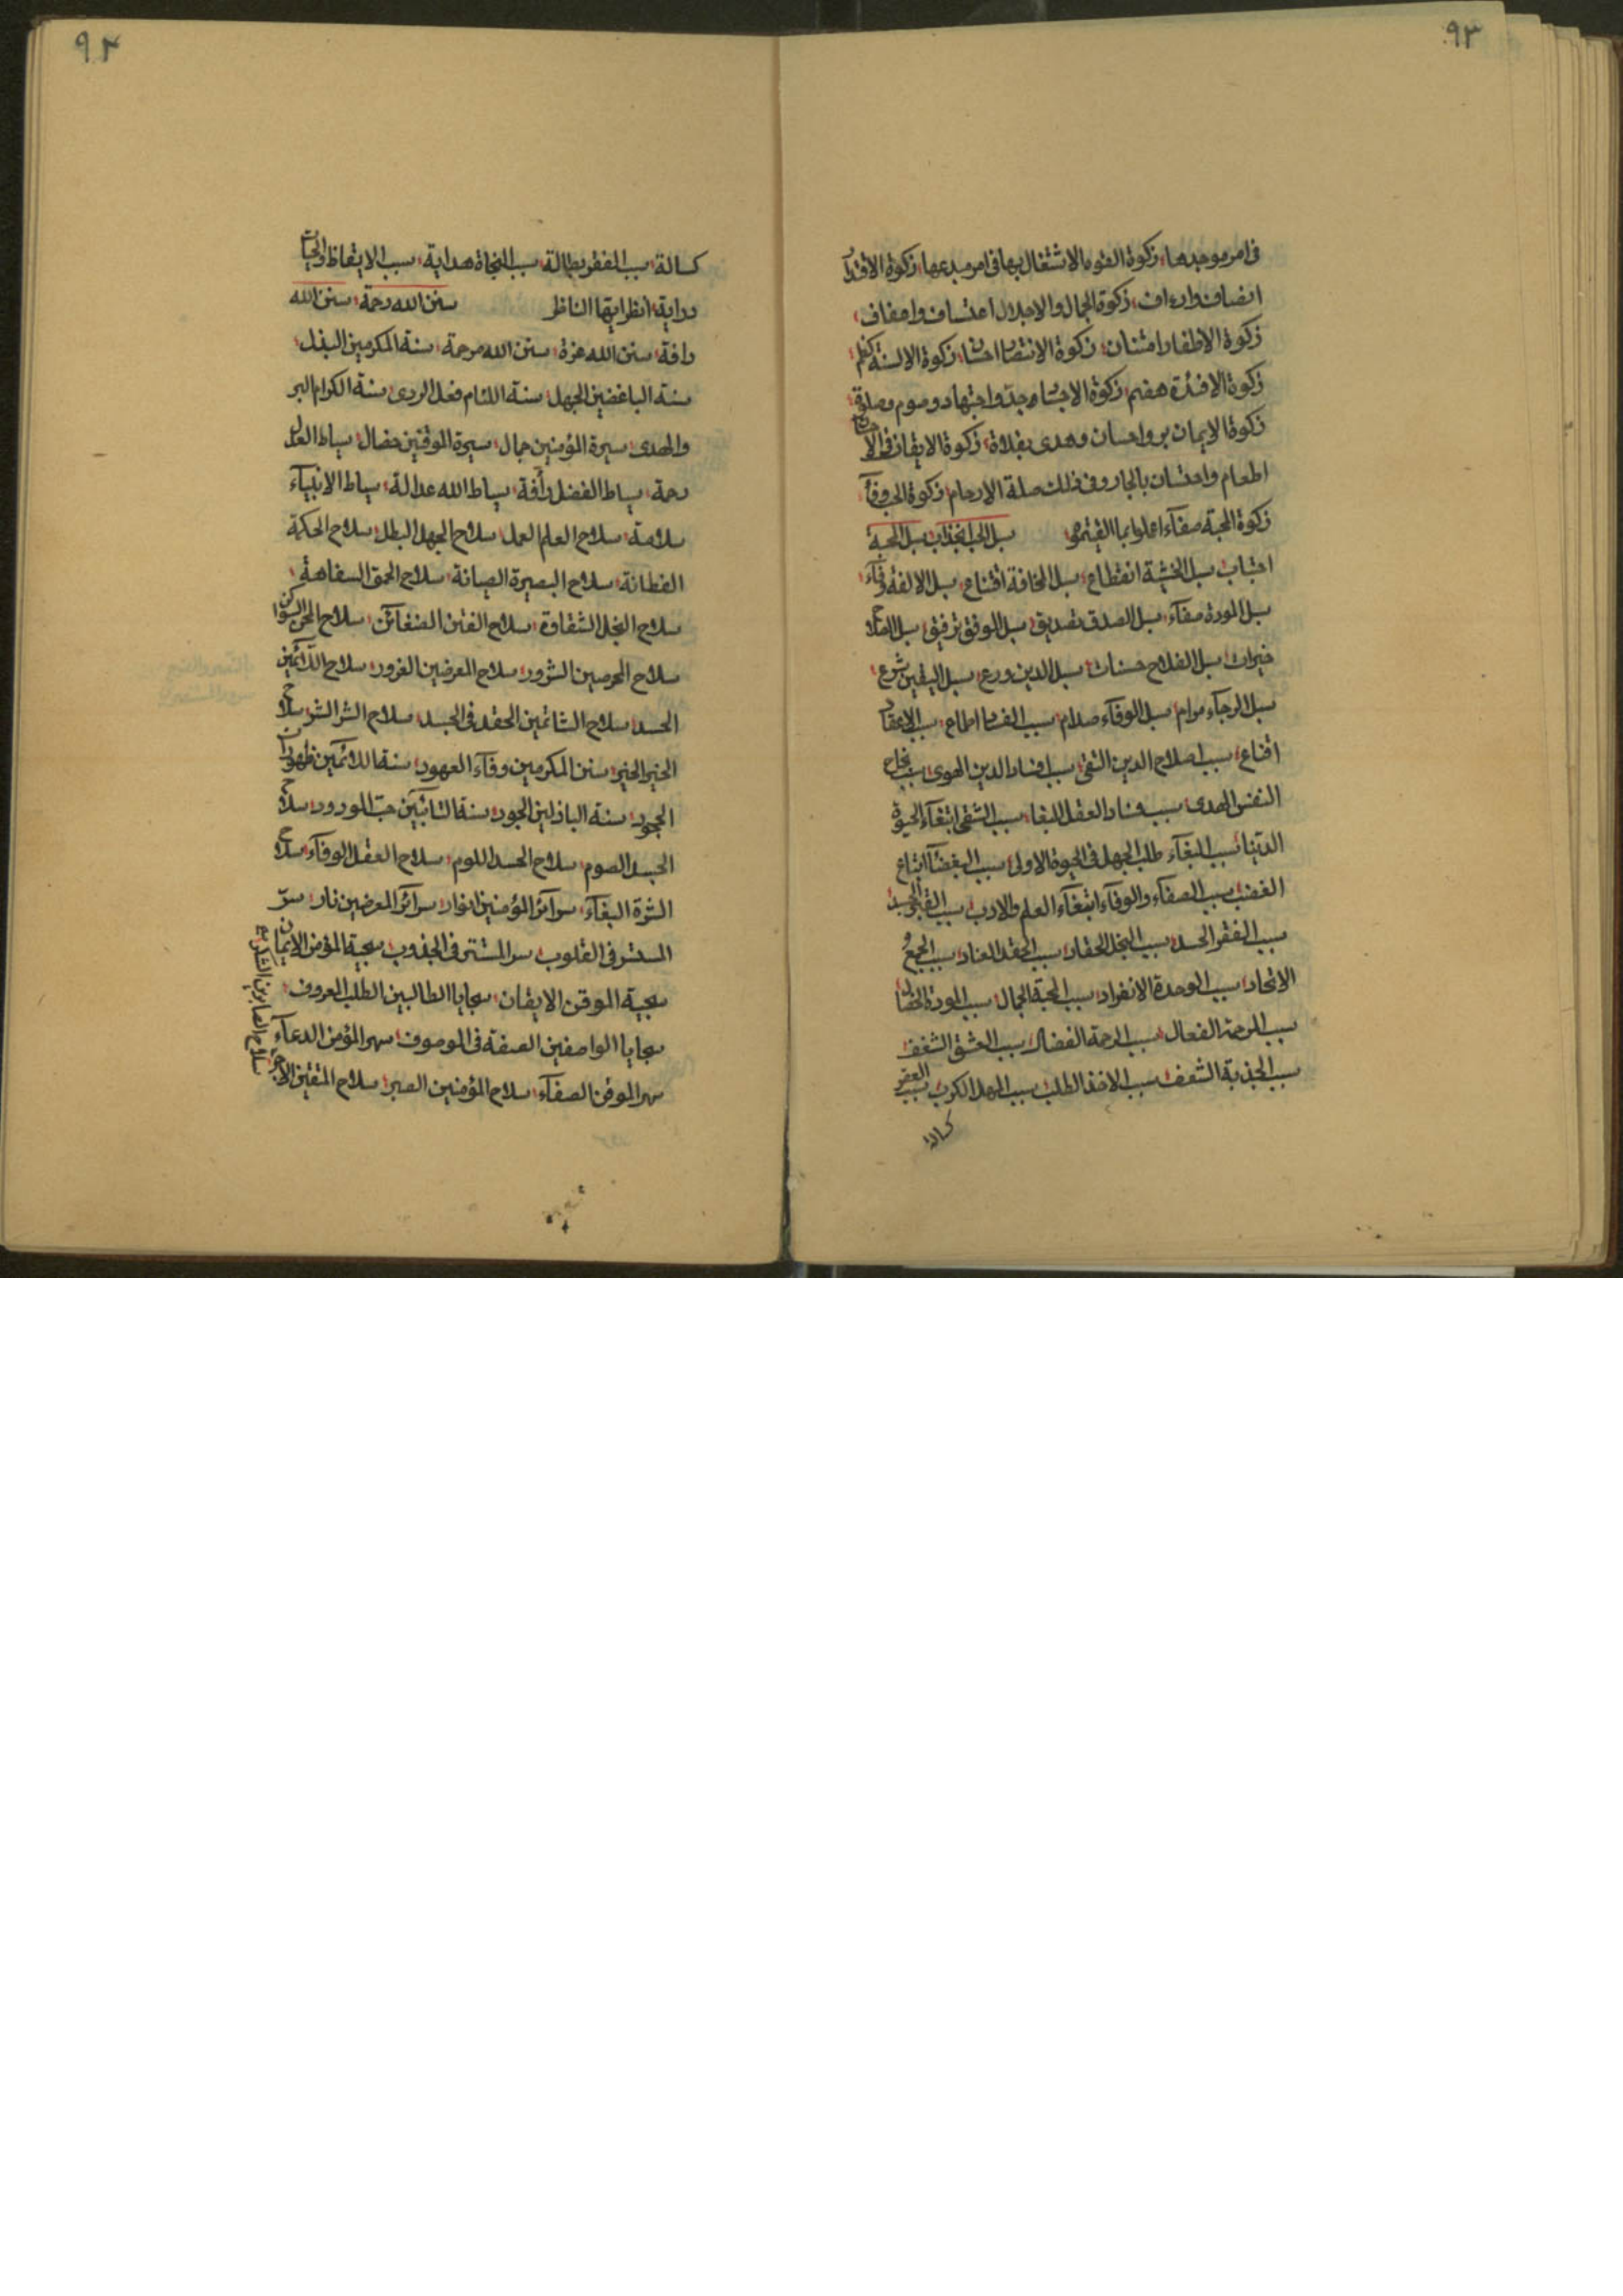 ٩٣
فی امر موجدها زکوة القوم الاشتغال بها فی امر مبدعها زکوة الاقتدار
انصاف وارءاف زکوة الجمال والاجلال اعتساف واعفاف
زکوة الاظفار امتنان زکوة الانتصار احسان زکوة الالسنة کظم
زکوة الافئدة هضم زکوة الاجسام جد واجتهاد وصوم وصلوة
زکوة الایمان بر واحسان وهدی بغداة زکوة الایقان فی
اطعام واحتسان بالجار وفی ذلک صلة الارحام زکوة الحب وفآء
زکوة المحبة صفآء اعملوا بما القیتم سبل الحب انجذاب سبل المحبة
اجتباب سبل الخشیة انقطاع سبل المخافة اقتناع سبل الالفة وفآء
سبل المودة صفآء سبل الصدق تصدیق سبل الموثق توفیق سبل الصلاح
خیرات سبل الفلاح حسنات سبل الدین ورع سبل الیقین شرع
سبل الرجآء مرام سبل الوفآء صلام سبب الفساد اطماع سبب الاعتقاد
اقناع سبب اصلاح الدین التقی سبب افساد الدین الهوی سبب نجاح
النفس الهدی سبب فساد العقل البغا سبب الشقی ابتغآء الحیوة
الدنیا سبب البغآء طلب الجهل فی الحیوة الاولی سبب البغضآء اتباع
الغضب سبب الصفآء والوفآء ابتغآء العلم والادب سبب القبح الحسد
سبب الفقر الحسد سبب البخل الحقاد سبب الحقد العناد سبب الجمع
الاتحاد سبب الوحدة الانفراد سبب المحبة الجمال سبب المودة الخصال
سبب المرحمة الفعال سبب الرحمة الفضال سبب العشق الشغف
سبب الجذبة الشعف سبب الاخذ الطلب سبب المهل الکرب سبب الفقر
کسالة
٩٤
کسالة سبب الفقر بطالة سبب النجاة هدایة سبب الایقاظ والحیات
درایة انظر ایها الناظر سنن الله رحمة سنن الله
رافة سنن الله عزة سنن الله مرحمة سنة المکرمین البذل
سنة الباغضین الجهل سنة اللئام فعل الردی سنة الکرام البر
والهدی سیرة المؤمنین جمال سیرة الموقنین خصال بساط العدل
رحمة بساط الفضل رأفة بساط الله عدالة بساط الانبیآء
سلامة سلاح العلم العمل سلاح الجهل البطل سلاح الحکمة
الفطانة سلاح البصیرة الصیانة سلاح الحمق السفاهة
سلاح البخل الشقاوة سلاح الفتن الضغآئن سلاح المحن
سلاح الحرصین الشرور سلاح المعرضین الغرور سلاح اللآئمین
الحسد سلاح الشاتمین الحقد فی الجسد سلاح الشر الشر سلاح
الخیر الخیر سنن المکرمین وفآء العهود سنة اللائمین ظهورات
الجحود سنة الباذلین الجود سنة التائبین حب المورود سلاح
الجسد الصوم سلاح الحسد اللوم سلاح العقل الوفآء سلاح
الشرة البغآء سرآئر المؤمنین انوار سرآئر المعرضین نار سر
المستسر فی القلوب سر المستتر فی الجذوب سجیة المؤمن الایمان
سجیة الموقن الایقان سجایا الطالبین الطلب المعروف
سجایا الواصفین الصفة فی الموصوف سهر المؤمن الدعآء
سهر الموقن الصفآء سلاح المؤمنین الصبر سلاح المتقین الاجر
سلاح الصابرین الشکر